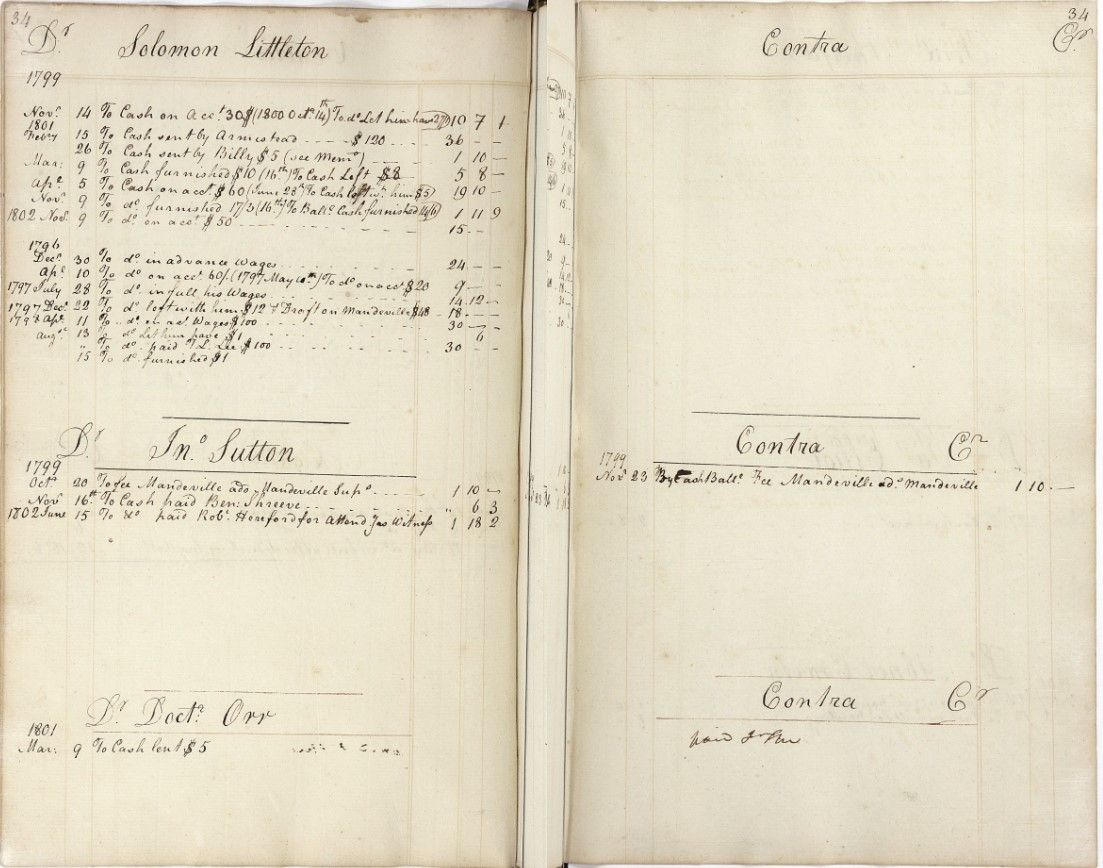 34
Dr Solomon Littleton
1799
Novr 14 To Cash on acct 30$ (1800 Octr 14th) To do Let him have 27/1 10 7 1
1801
Febry 15 To Cash sent by Armistead $120 36 — —
26 To Cash sent by Billy $5 (see Memo) 1 10 —
Mar: 9 To Cash furnished $10 (16th) To Cash Left $8 5 8 —
Apl 5 To Cash on acct $60 (June 28th To Cash left wt him $5) 19 10 —
Novr 9 To do furnished 17/3 (16th) To Balce Cash furnished 14/6 1 11 9
1802 Novr 9 To do on acct $50 15 — —
1796
Decr 30 To do in advance Wages 24 — —
Apl 10 To do on acct 60/. (1797 May 10th) To do on acct $20 9 — —
1797 July 28 To do in full his Wages 14 12 —
1797 Decr 22 To do left with him $12 & Draft on Mandeville $48 18 — —
1798 Apl 11 To do on act Wages $100 30 — —
Augt 13 To do Let him have $1 6
" To do paid T. L. Lee $100 30 — —
15 To do furnished $1
Dr Jno Sutton
1799
Octr 20 To fee Mandeville ads Mandeville Supr 1 10 —
Novr 16th To Cash paid Ben: Shreeve " 6 3
1802 June 15 To do paid Robt Hereford for Attend as Witness 1 18 2
Dr Doctr Orr
1801
Mar: 9 To Cash lent $5
34
Contra Cr
Contra Cr
1799
Novr 23 By Cash Balle Fee Mandeville ads Mandeville 1 10 —
Contra Cr
paid